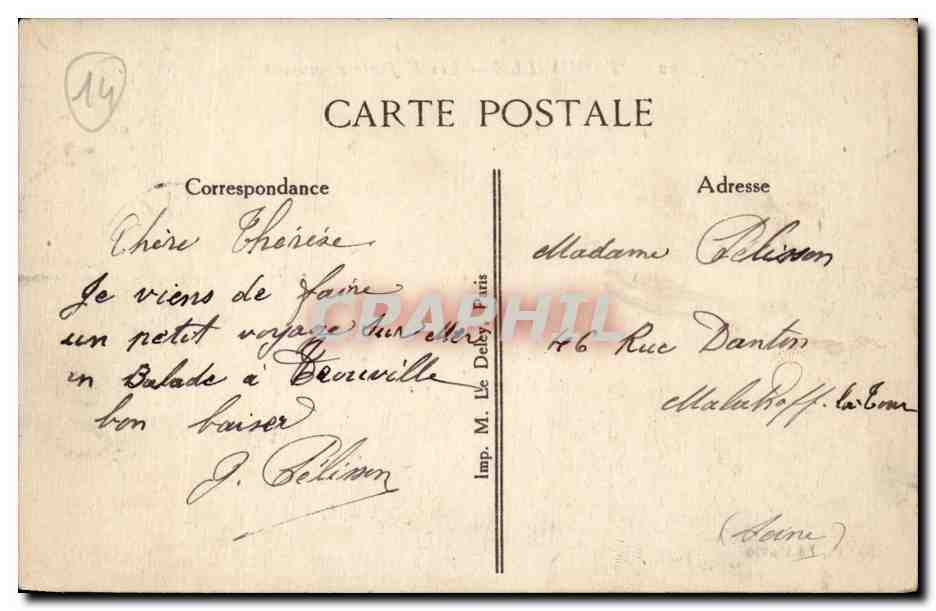 14
CARTE POSTALE
Correspondance
Chère Thérèse
Je viens de faire
un petit voyage sur Mer
en Balade à Trouville
bon baiser
J. Pélisson
Imp. M. Le Deley, Paris
CPAPHIL
Adresse
Madame Pélisson
46 Rue Danton
Malakoff-la-Tour
(Seine)